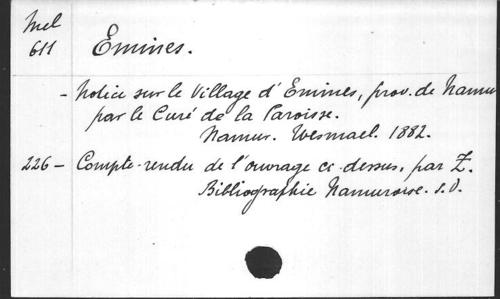 Mel
611
Emines.
- Notice sur le Village d'Emines, prov. de Namur
par le Curé de la Paroisse.
Namur. Wesmael. 1882.
226 - Compte-rendu de l'ouvrage ci-dessus, par Z.
Bibliographie Namuroise. s.d.